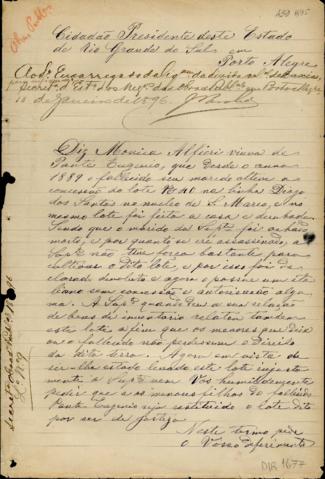 Obras Publ.
Cidadão Presidente deste Estado
de Rio Grande do Sul em
Porto Alegre
de Janeiro de 1896.
Diz Monica Alfieri viuva de
Ponte Eugenio, que desde o anno
1889 o fallecido seu marido obteve a
concessão do lote Nº 40 na linha Diogo
dos Santos no nucleo de S. Maria, e no
mesmo lote foi feita a casa e derrubada.
Sendo que o marido da Suptᵉ foi achado
morto, e por quanto se crê assassinado, a
Suptᵉ não tem força bastante para
cultivar o dito lote, e por isso foi de-
clarado devoluto e agora o possue um ita-
liano sem concessão e autorisação algu-
ma. A Supᵉ quando deu a sua relação
de bens de inventario relatou tambem
este lote a fim que os menores que deixa-
ou o fallecido não perdessem o Direito
da dita terra. Agora em vista de
ser-lhe estado levado este lote injusta-
mente a Suptᵉ vem Vos humildemente
pedir que a os menores filhos do fallecido
Ponte Eugenio seja restituido o lote dito
por ser de justiça.
Neste termo pede
o Vosso deferimento
DIR 1677